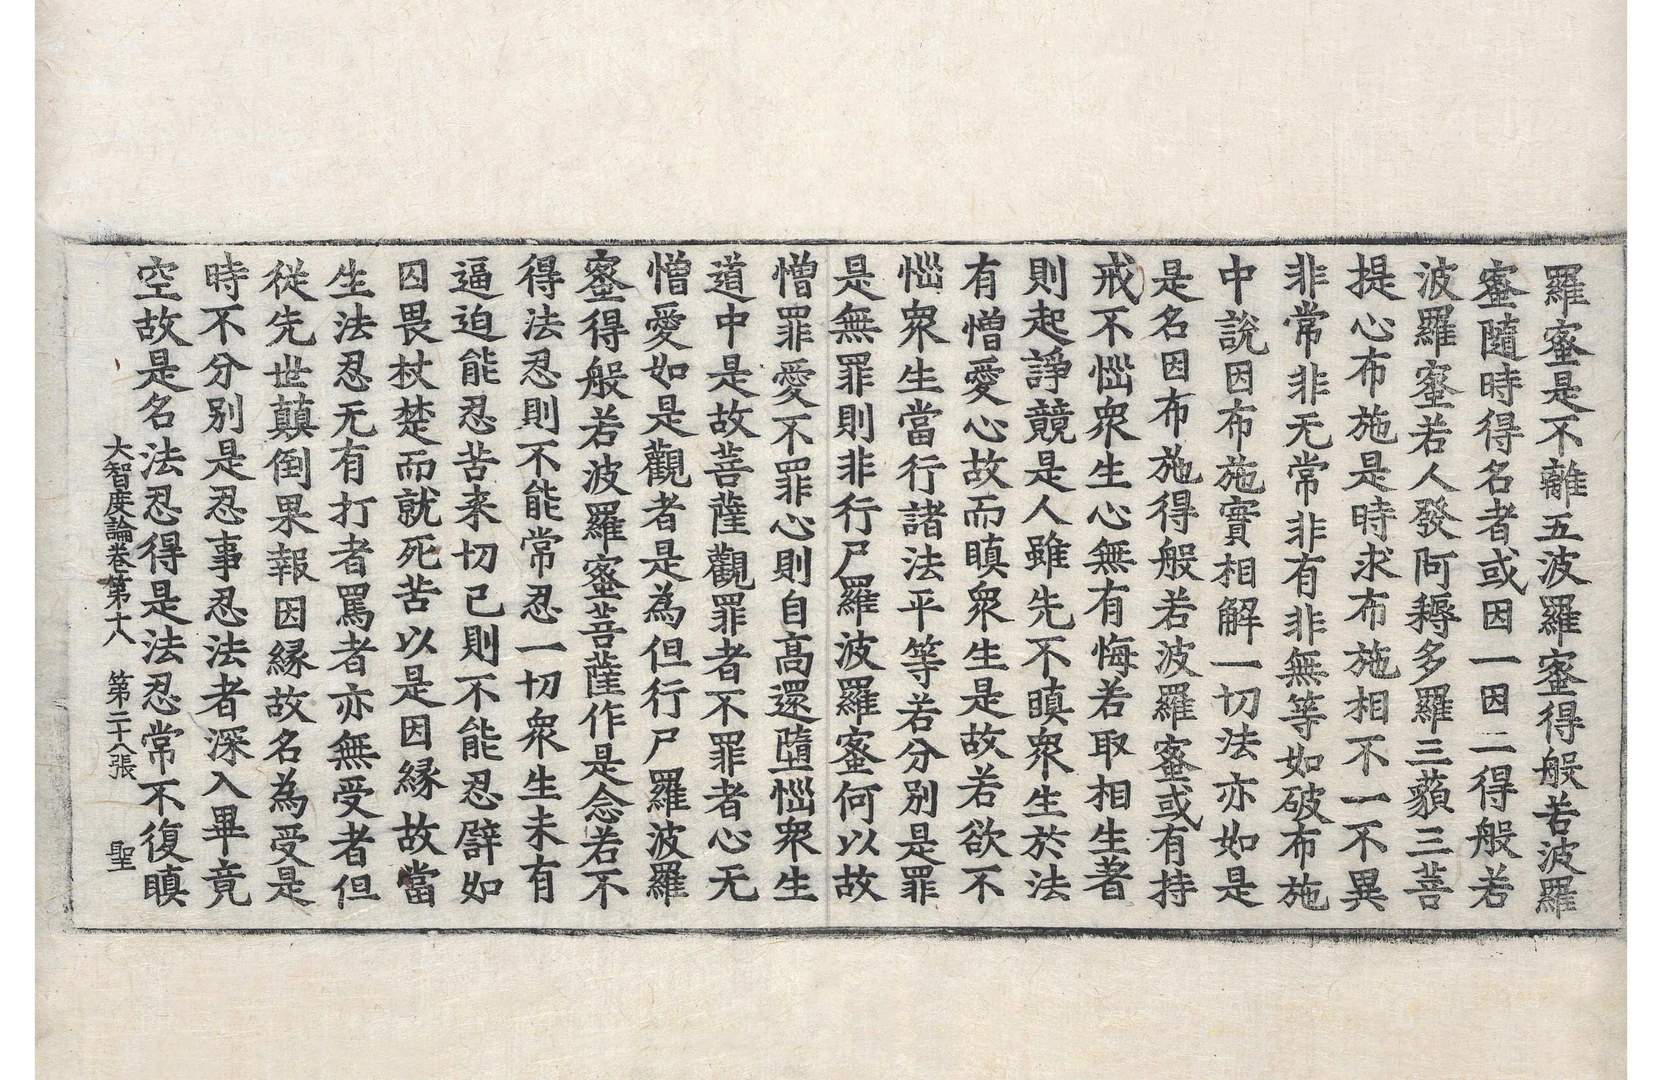 羅蜜是不離五波羅蜜得般若波羅
蜜隨時得名者或因一因二得般若
波羅蜜若人發阿耨多羅三藐三菩
提心布施是時求布施相不一不異
非常非无常非有非無等如破布施
中說因布施實相解一切法亦如是
是名因布施得般若波羅蜜或有持
戒不惱衆生心無有悔若取相生著
則起諍競是人雖先不瞋衆生於法
有憎愛心故而瞋衆生是故若欲不
惱衆生當行諸法平等若分別是罪
是無罪則非行尸羅波羅蜜何以故
憎罪愛不罪心則自高還墮惱衆生
道中是故菩薩觀罪者不罪者心无
憎愛如是觀者是為但行尸羅波羅
蜜得般若波羅蜜菩薩作是念若不
得法忍則不能常忍一切衆生未有
逼迫能忍苦来切己則不能忍譬如
囚畏杖楚而就死苦以是因縁故當
生法忍无有打者罵者亦無受者但
從先世顛倒果報因縁故名為受是
時不分別是忍事忍法者深入畢竟
空故是名法忍得是法忍常不復瞋
大智度論卷第十八 第二十八張 聖